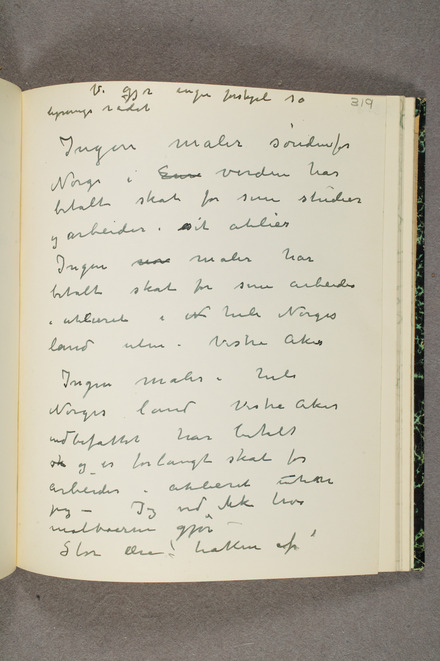 Vi gjør ingen forskjel so
lignings rådet
319
Ingen maler söndenfor
Norge i verden har
betalt skat for sine studier
og arbeider i sit atelier
Ingen maler har
betalt skat for sine arbeider
i atelieret i hele Norges
land uten i Vestre Aker
Ingen maler i hele
Norges land Vestre Aker
indbefattet har betalt
og er forlangt skat for
arbeider i atelieret uten
jeg — Jeg ved ikke hva
gjør —
Stor ære! hatten af!